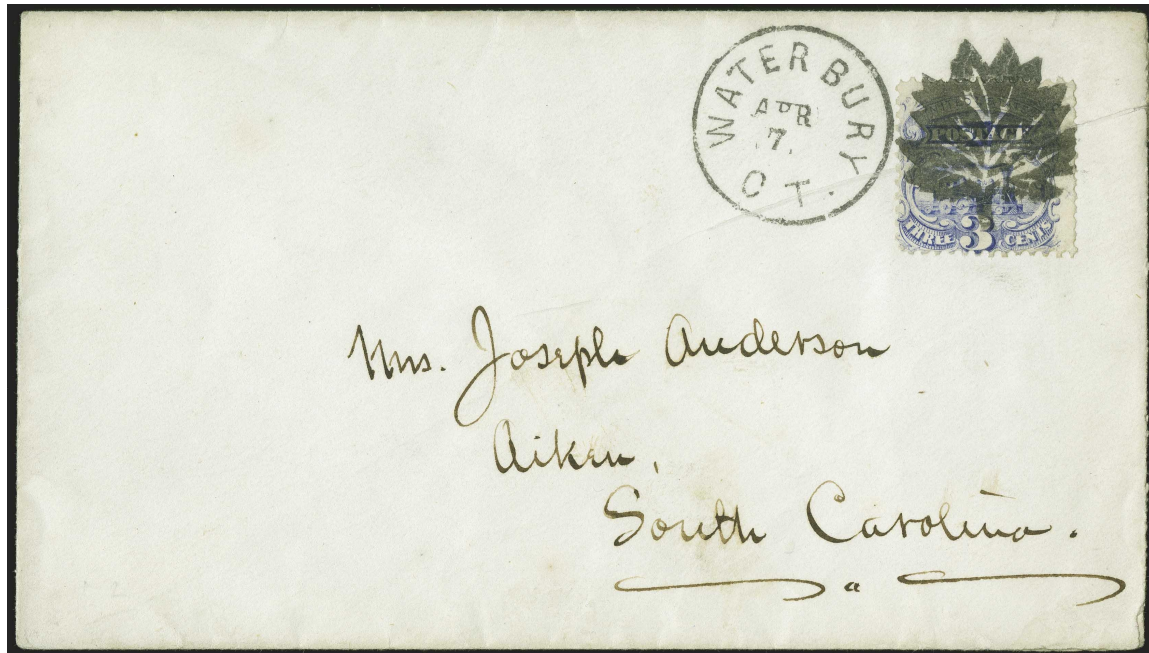 WATERBURY.
APR
7.
CT.
POSTAGE
THREE 3 CENTS
Mrs. Joseph Anderson
Aiken,
South Carolina.